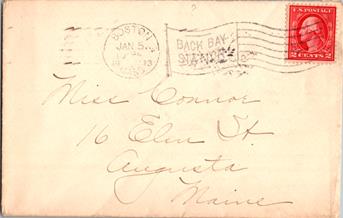 BOSTON
JAN 5
13
MASS
BACK BAY
STA
U.S. POSTAGE
2 CENTS 2
Miss Connor
16 Elm St
Augusta
Maine